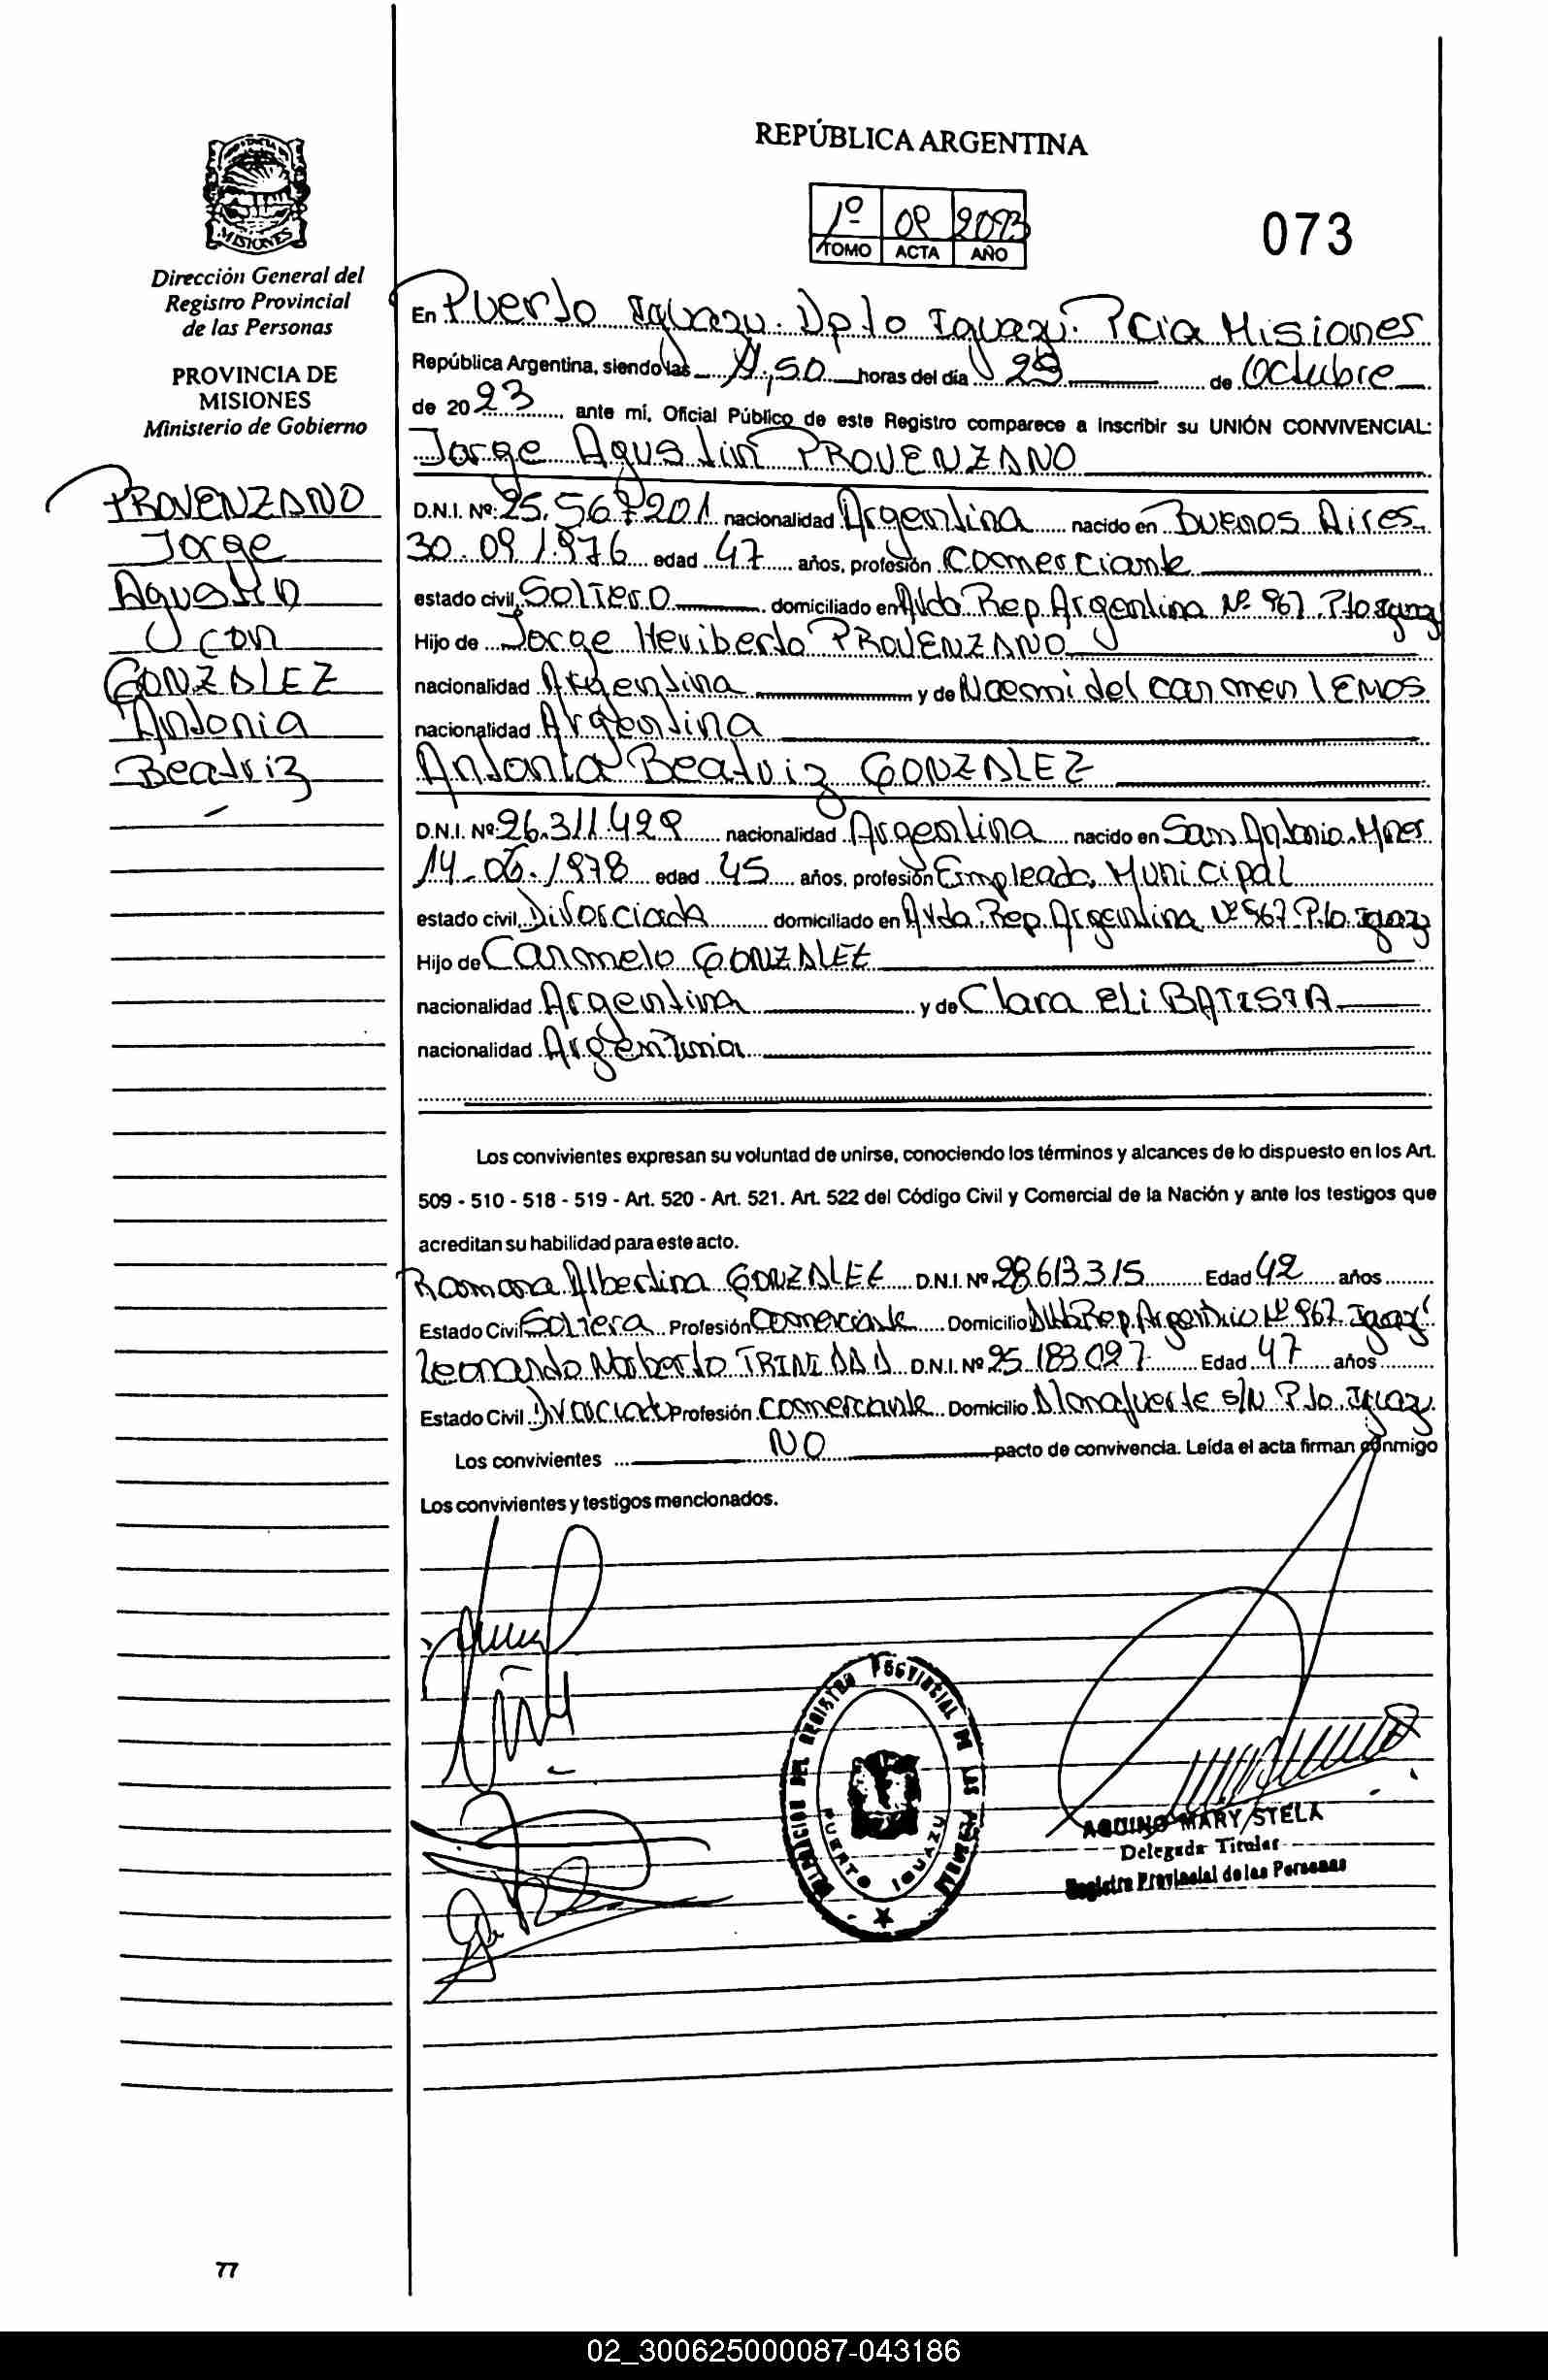 REPÚBLICA ARGENTINA
MISIONES
Dirección General del
Registro Provincial
de las Personas
PROVINCIA DE
MISIONES
Ministerio de Gobierno
1º
TOMO ACTA AÑO
073
En Puerto Iguazu. Dpto Iguazu. Pcia Misiones
República Argentina, siendo las 11,50 horas del día de Octubre
de 2023, ante mí, Oficial Público de este Registro comparece a Inscribir su UNIÓN CONVIVENCIAL:
Jorge Agustin PROVENZANO
D.N.I. Nº: 25.567201 nacionalidad Argentina nacido en Buenos Aires
30.09.1.976 edad 47 años, profesión Comerciante
estado civil, Soltero domiciliado en Avda Rep Argentina Nº 967 Pto Iguazu
Hijo de Jorge Heriberto PROVENZANO
nacionalidad Argentina y de Noemi del carmen LEMOS
nacionalidad Argentina
Antonia Beatriz GONZALEZ
D.N.I. Nº: 26.311.429 nacionalidad Argentina nacido en San Antonio. Mnes
14-06.1978 edad 45 años, profesión Empleada Municipal
estado civil, Divorciada domiciliado en Avda. Rep. Argentina Nº 967 Pto. Iguazu
Hijo de Carmelo GONZALEZ
nacionalidad Argentina y de Clara Eli BATISTA
nacionalidad Argentina
PROVENZANO
Jorge
Agustin
con
GONZALEZ
Antonia
Beatriz
Los convivientes expresan su voluntad de unirse, conociendo los términos y alcances de lo dispuesto en los Art.
509 - 510 - 518 - 519 - Art. 520 - Art. 521. Art. 522 del Código Civil y Comercial de la Nación y ante los testigos que
acreditan su habilidad para este acto.
Ramona Albertina GONZALEZ D.N.I. Nº 28613315 Edad 42 años
Estado Civil Soltera Profesión Comerciante Domicilio Avda Rep. Argentina Nº 967 Iguazú
Leonardo Norberto TRINIDAD D.N.I. Nº 25 183 027 Edad 47 años
Estado Civil Divorciado Profesión Comerciante Domicilio Almafuerte s/N Pto. Iguazu
Los convivientes NO pacto de convivencia. Leída el acta firman conmigo
Los convivientes y testigos mencionados.
DIRECCION DEL REGISTRO PROVINCIAL DE LAS PERSONAS
PUERTO IGUAZU
AQUINO MARY STELA
Delegada Titular
Registro Provincial de las Personas
77
02_300625000087-043186